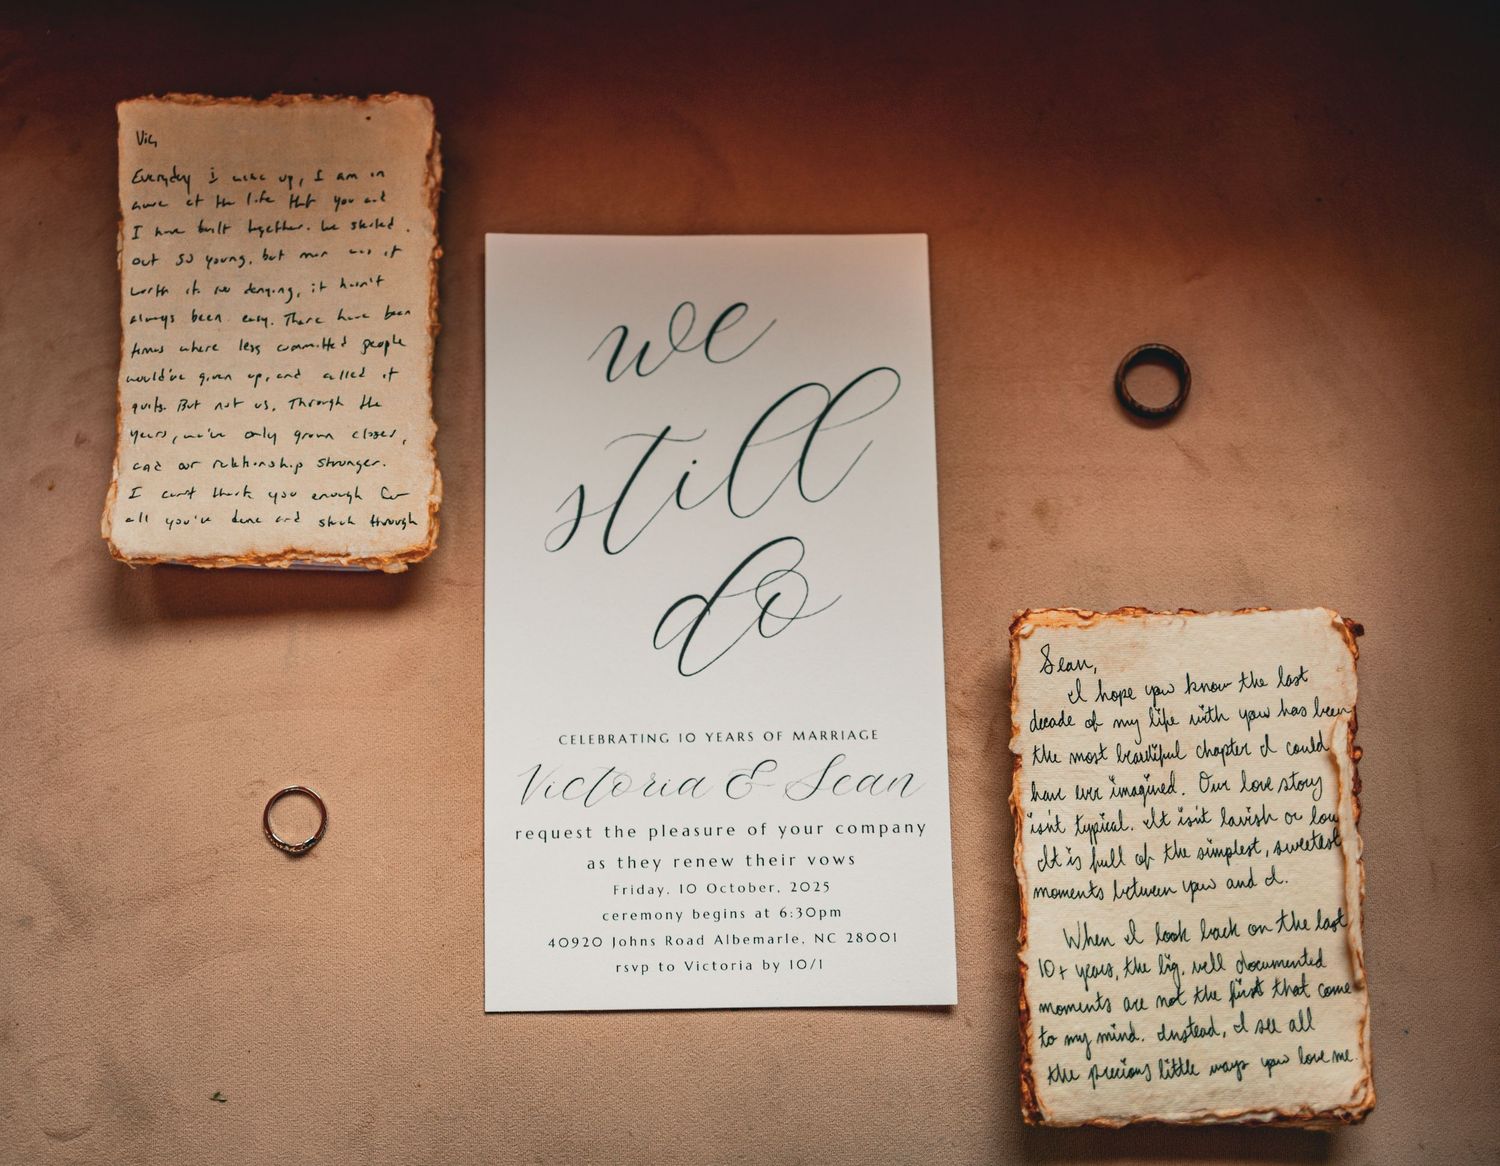 Vic,
Everyday i wake up, I am in
awe at the life that you and
I have built together. We started
out so young, but man was it
worth it. no denying, it hasn't
always been easy. There have been
times where less committed people
would've given up, and called it
quits. But not us. Through the
years, we've only grown closer,
and our relationship stronger.
I can't thank you enough for
all you've done and stuck through
we
still
do
CELEBRATING 10 YEARS OF MARRIAGE
Victoria & Sean
request the pleasure of your company
as they renew their vows
Friday, 10 October, 2025
ceremony begins at 6:30pm
40920 Johns Road Albemarle, NC 28001
rsvp to Victoria by 10/1
Sean,
I hope you know the last
decade of my life with you has been
the most beautiful chapter I could
have ever imagined. Our love story
isn't typical. It isn't lavish or
It is full of the simplest, sweetest
moments between you and I.
When I look back on the last
10+ years, the big, well documented
moments are not the first that come
to my mind. Instead, I see all
the precious little ways you love me.